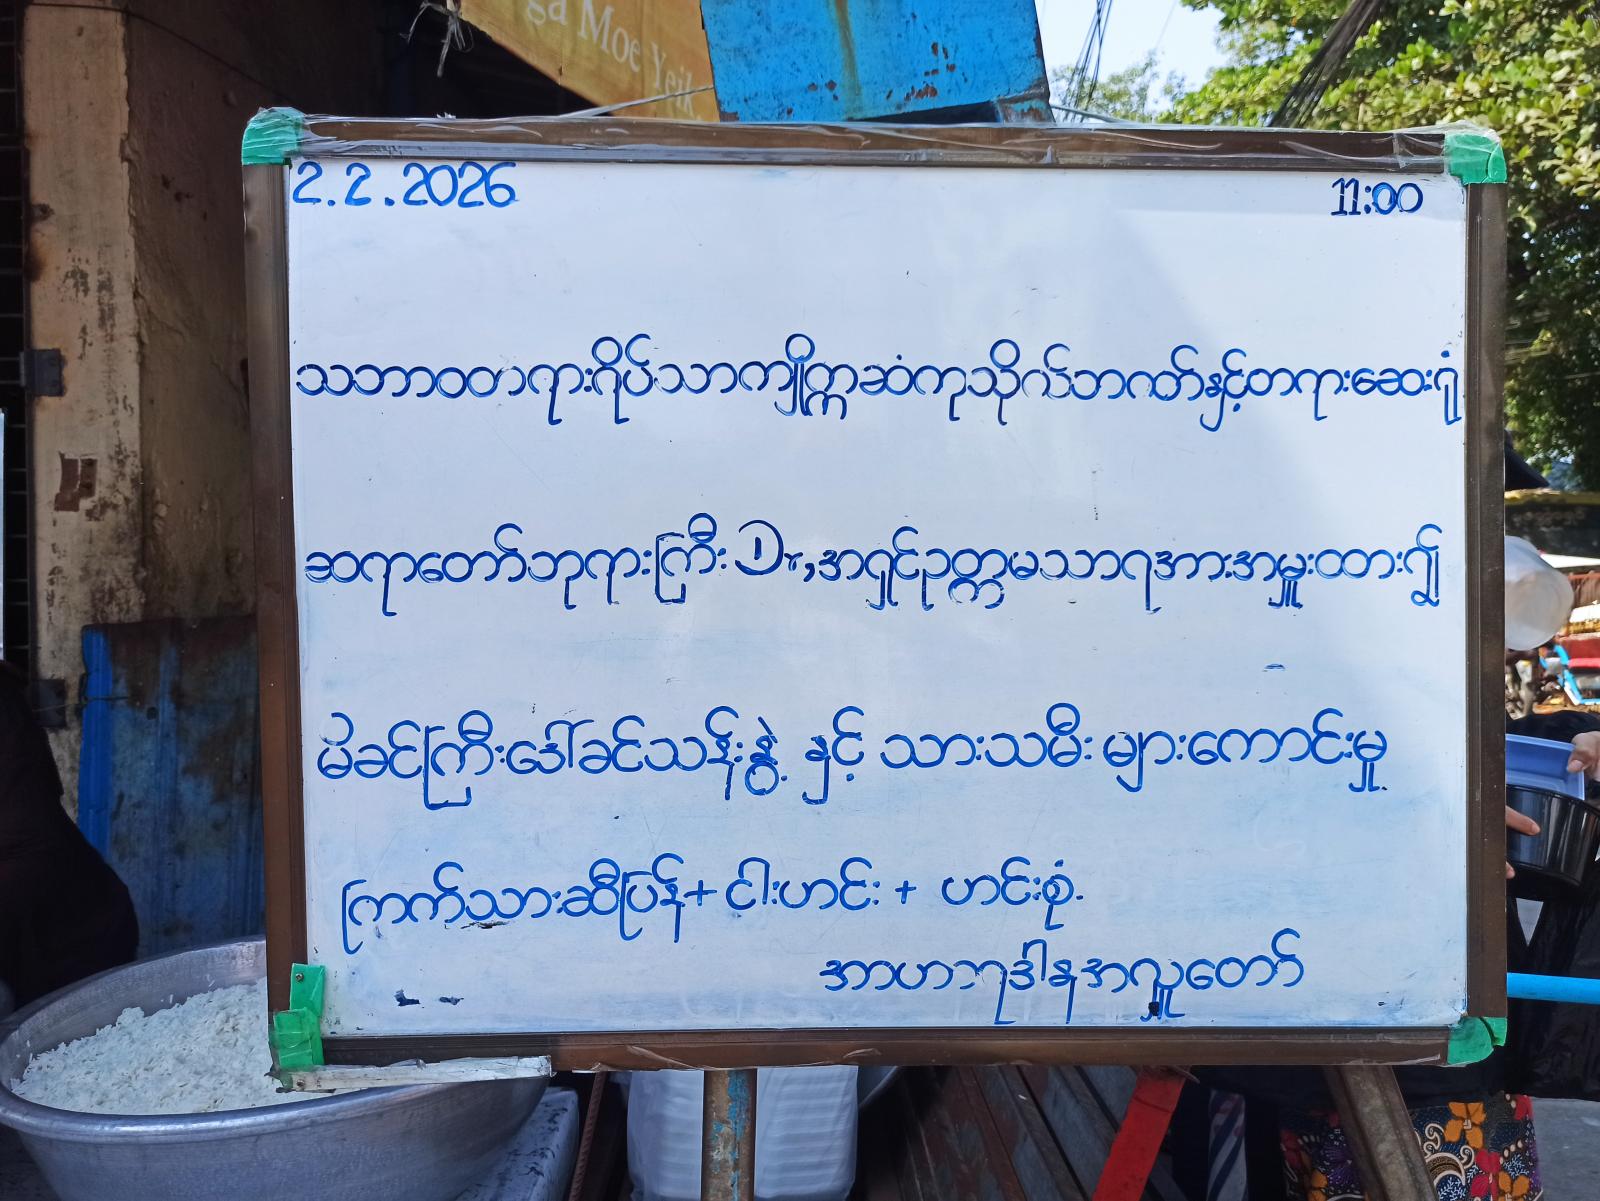 ga Moe Yeik
2.2.2026
11:00
သဘာဝတရားရိပ်သာကျိုက္ကဆံကုသိုလ်ဘဏ်နှင့်တရားဆေးရုံ
ဆရာတော်ဘုရားကြီး Dr, အရှင်ဥတ္တမသာရအားအမှူးထား၍
မိခင်ကြီးဒေါ်ခင်သန်းနွဲ့ နှင့် သားသမီးများကောင်းမှု
ကြက်သားဆီပြန် + ငါးဟင်း + ဟင်းစုံ.
အာဟာရဒါနအလှူတော်